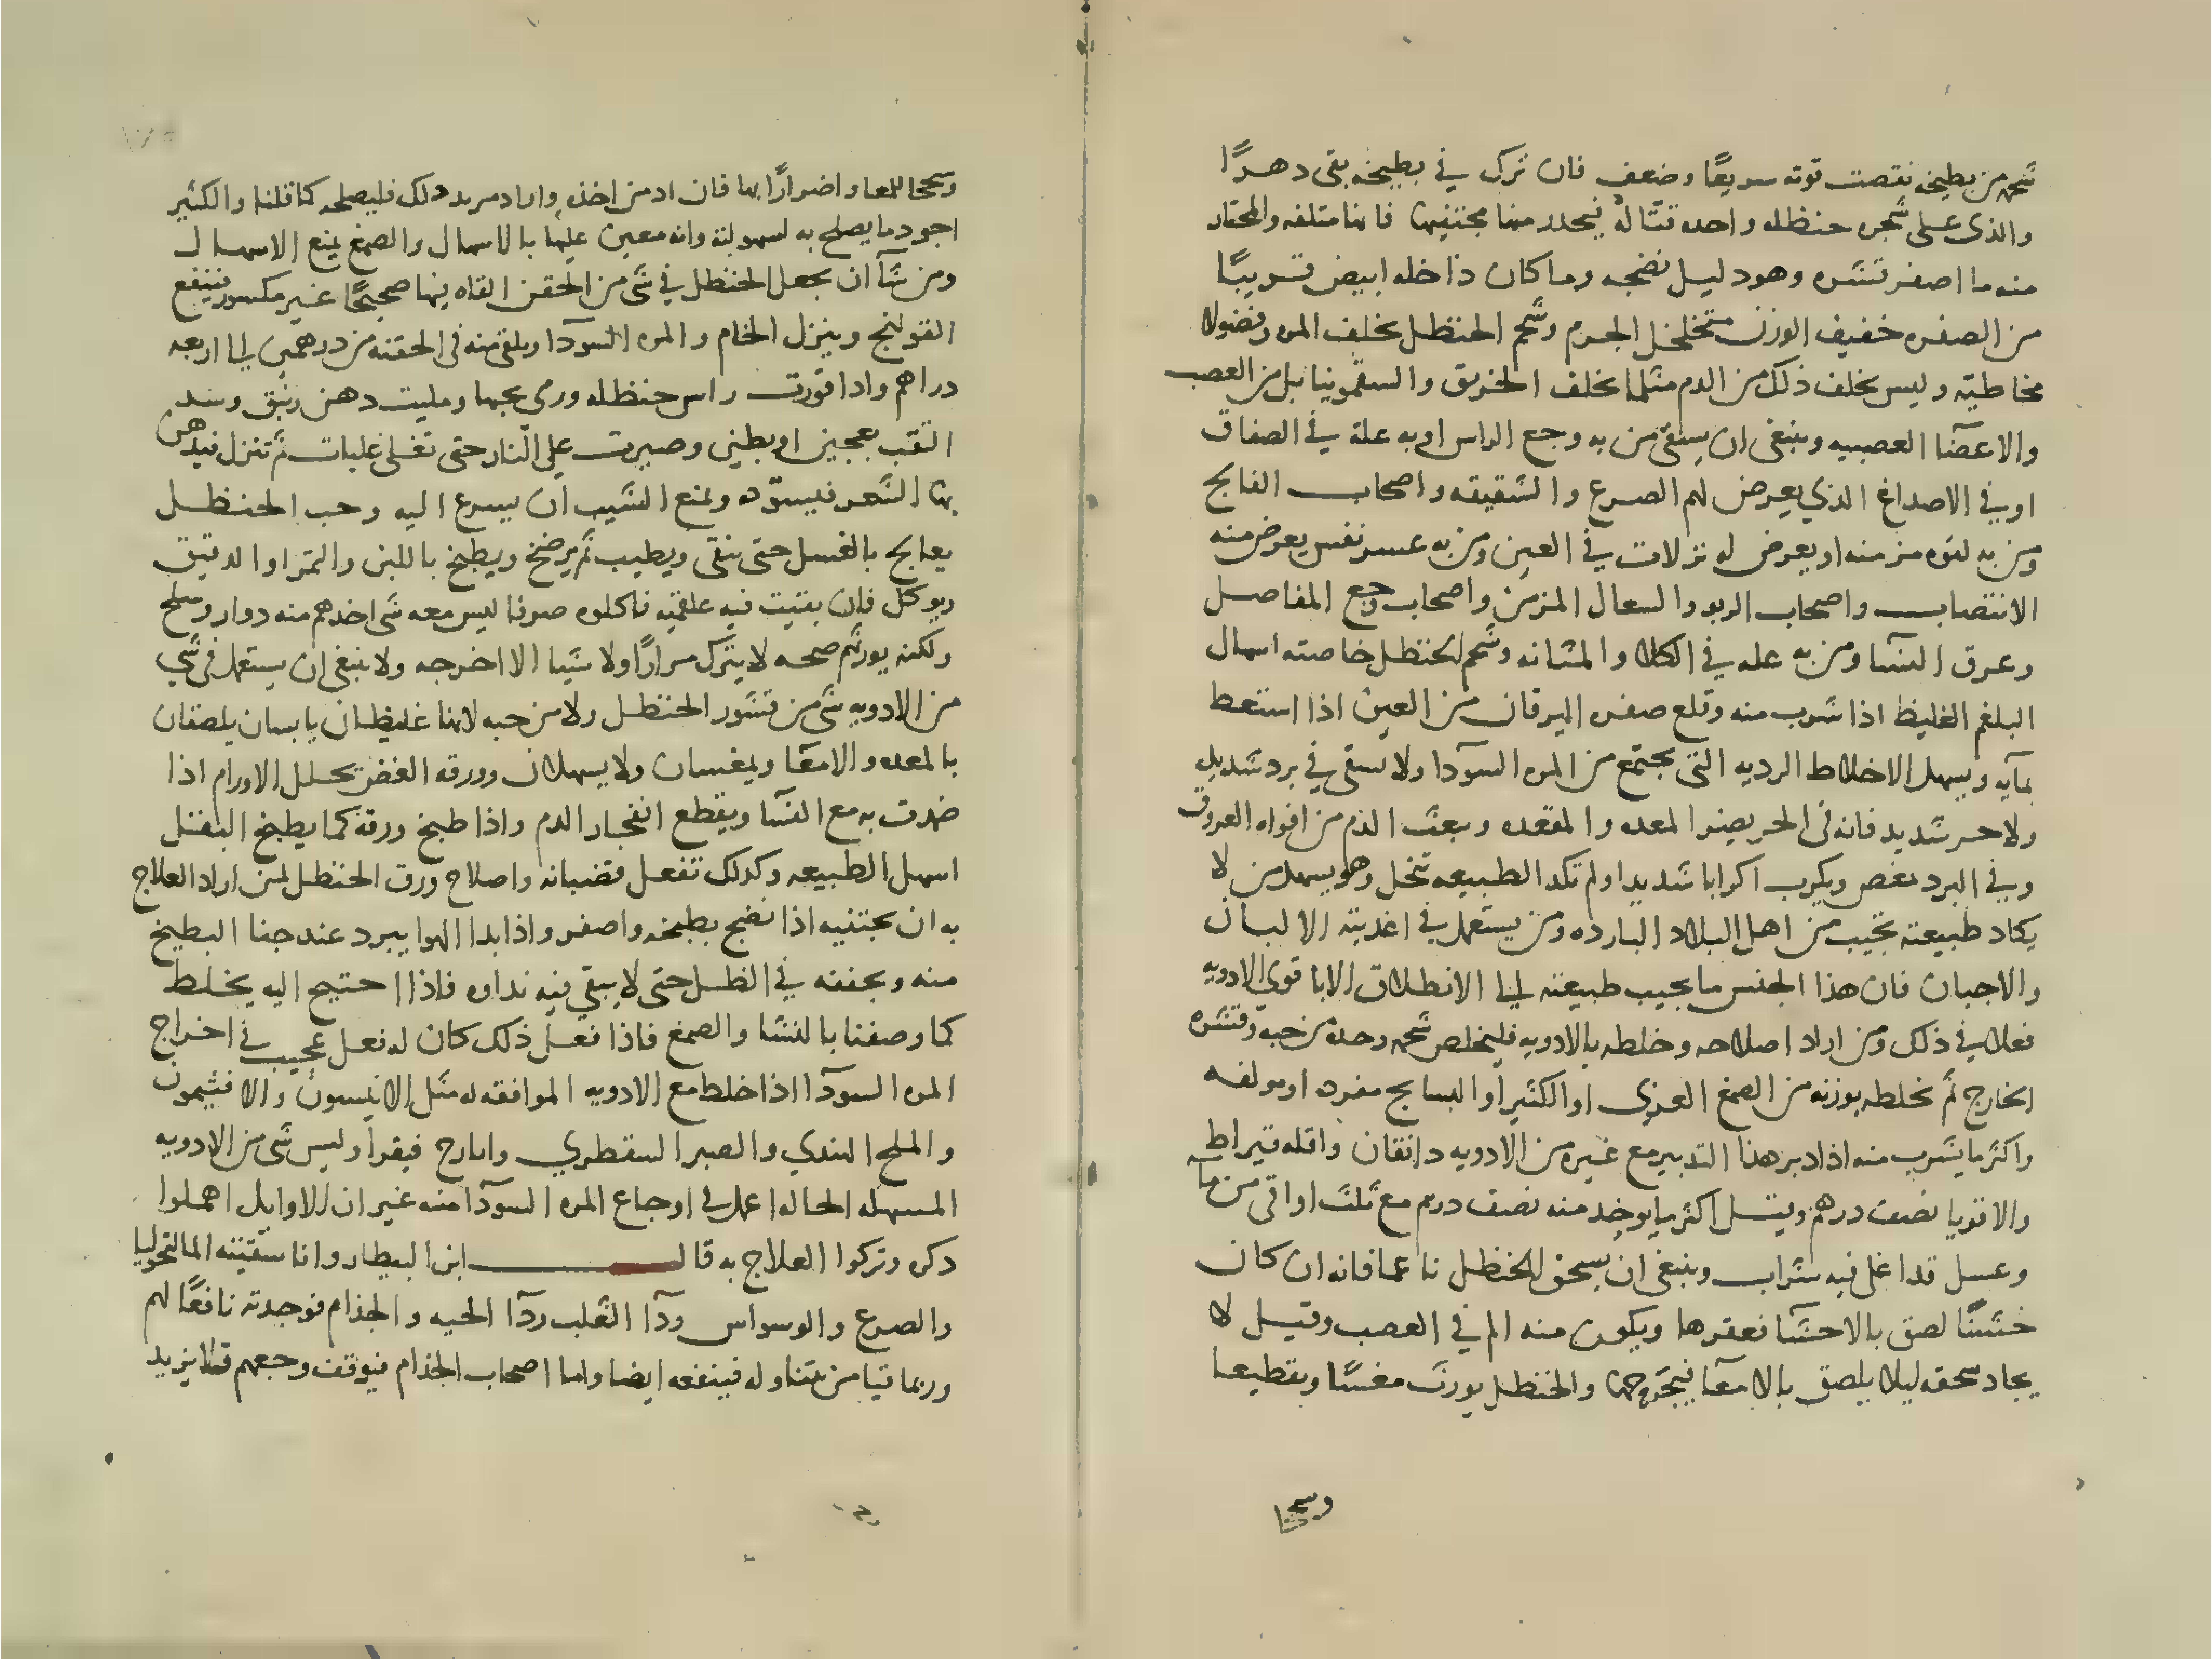 شحمه من بطيخه نقصت قوته سريعًا وضعف فان ترك في بطيخه بقى دهرًا
والذى على شجره حنظله واحده قتاله فيحذر منها مجتنيها فانها متلفه والمختار
منه ما اصفر قشره وهو دليل نضجه وما كان داخله ابيض قريبًا
من الصفره خفيف الوزن متخلخل الجرم وشحم الحنظل يخلف المره وفضولا
مخاطيه وليس يخلف ذلك من الدم مثلما يخلف الخربق والسقمونيا بل من العصب
والاعضآ العصبيه وينبغى ان يسقى من به وجع الراس او به علة في الصفاق
او في الاصداغ الذي يعرض لهم الصرع والشقيقه واصحاب الفالج
ومن به لقوه مزمنه او يعرض له نزلات في العين ومن به عسر نفس يعرض منه
الانتصاب واصحاب الربو والسعال المزمن واصحاب وجع المفاصل
وعرق النسآ ومن به عله في الكلا والمثانه وشحم الحنظل خاصته اسهال
البلغم الغليظ اذا شرب منه وقلع صفره اليرقان من العين اذا استعط
بمآيه ويسهل الاخلاط الرديه التى تجتمع من المره السودآ ولا يسقى في برد شديد
ولا حر شديد فانه فى الحر يضر المعده والمقعده ويبعث الدم من افواه العروق
وفي البرد يمغص ويكرب اكرابا شديدا ولم تكد الطبيعه تنحل وهو يسهل من لا
يكاد طبيعته تجيب من اهل البلاد البارده ومن يستعمل في اغذيته الالبان
والاجبان فان هذا الجنس ما يجيب طبيعته الى الانطلاق الا باقوي الادويه
فعلا في ذلك ومن اراد اصلاحه وخلطه بالادويه فليخلص شحمه وحده من حبه وقشره
الخارج ثم يخلطه بوزنه من الصمغ العربي او الكثيرآ او النشا مفرده او مولفه
واكثر ما يشرب منه اذا دبر هذا التدبير مع غيره من الادويه دانقان واقله قيراط
والاقويا نصف درهم وقيل اكثر ما يوخد منه نصف درهم مع ثلث اواقى من ما
وعسل قد اغلى فيه سذاب وينبغى ان يسحق الحنظل ناعما فانه ان كان
خشنًا لصق بالاحشآ فعقرها ويكون منه الم في العصب وقيل لا
يجاد سحقه ليلا يلصق بالامعآ فيجرحها والحنظل يورث مغسًا وتقطيعا
وسحجا
وسحجا للمعا واضرارًا بها فان ادمن اخذه واراد مريد ذلك فليصلحه كما قلنا والكثير
اجود ما يصلح به لسهولته وانه معين عليها بالاسهال والصمغ يمنع الاسهال
ومن شآ ان يجعل الحنظل في شى من الحقن القاه فيها صحيحًا غير مكسور فينفع
القولنج وينزل الخام والمره السودآ ويلقى منه فى الحقنه من درهمين الى اربعه
دراهم واذا قورت راس حنظله ورمى بحبها ومليت دهن زنبق وسد
الثقب بعجين او بطين وصيرت على النار حتى تغلى غليات ثم تنزل فيدهن
بها الشعر فيسوده ويمنع الشيب ان يسرع اليه وحب الحنظل
يعالج بالغسل حتى ينقى ويطيب ثم يرضخ ويطبخ باللبن والتمر او الدقيق
ويوكل فان بقيت فيه علقميه فاكلوه صرفا ليس معه شى اخذهم منه دوار وسلح
ولكنه يورثهم صحه لا يترك مرارًا ولا شيا الا اخرجه ولا ينبغى ان يستعمل فى شي
من الادويه شى من قشور الحنظل ولا من حبه لانها غليظان يابسان يلصقان
بالمعده والامعآ ويمغسان ولا يسهلان وورقه الغض يحلل الاورام اذا
ضمدت به مع النشآ ويقطع انفجار الدم واذا طبخ ورقه كما يطبخ البقل
اسهل الطبيعه وكذلك تفعل قضبانه واصلاح ورق الحنظل لمن اراد العلاج
به ان يجتنيه اذا نضج بطيخه واصفر واذا بدا الهوا يبرد عند جنا البطيخ
منه ويجففه في الظل حتى لا يبقى فيه نداوه فاذا احتيج اليه يخلط
كما وصفنا بالنشا والصمغ فاذا فعل ذلك كان له فعل عجيب في اخراج
المره السودآ اذا خلط مع الادويه الموافقه له مثل الانيسون والافثيمون
والملح الهندي والصبر السقطري وايارج فيقرا وليس شى من الادويه
المسهله الحاله اعمل في اوجاع المره السودآ منه غير ان الاوايل اهملوا
ذكره وتركوا العلاج به قال ابن البيطار وانا سقيته المالنخوليا
والصرع والوسواس ودآ الثعلب ودآ الحيه والجذام فوجدته نافعًا لهم
وربما قيا من تناوله فينفعه ايضا واما اصحاب الجذام فيوقف وجعهم فلا يزيد